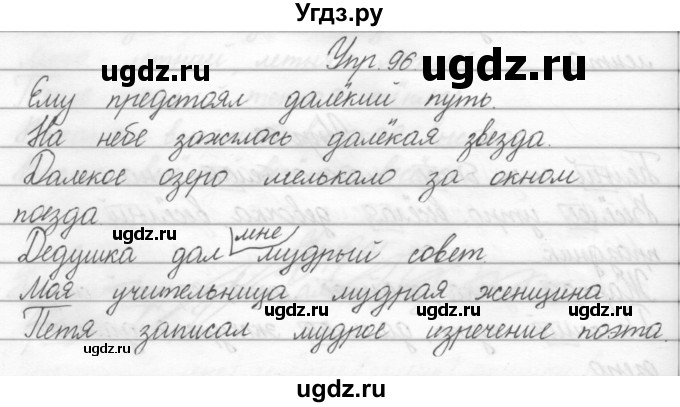 Угдз.ру
Упр. 96
Ему предстоял далёкий путь.
На небе зажглась далёкая звезда.
Далекое озеро мелькало за окном
поезда.
Дедушка дал мне мудрый совет
Моя учительница мудрая женщина
Петя записал мудрое изречение поэта.
ugdz.ru
ugdz.ru
ugdz.ru
ugdz.ru
ugdz.ru
ugdz.ru
ugdz.ru
ugdz.ru